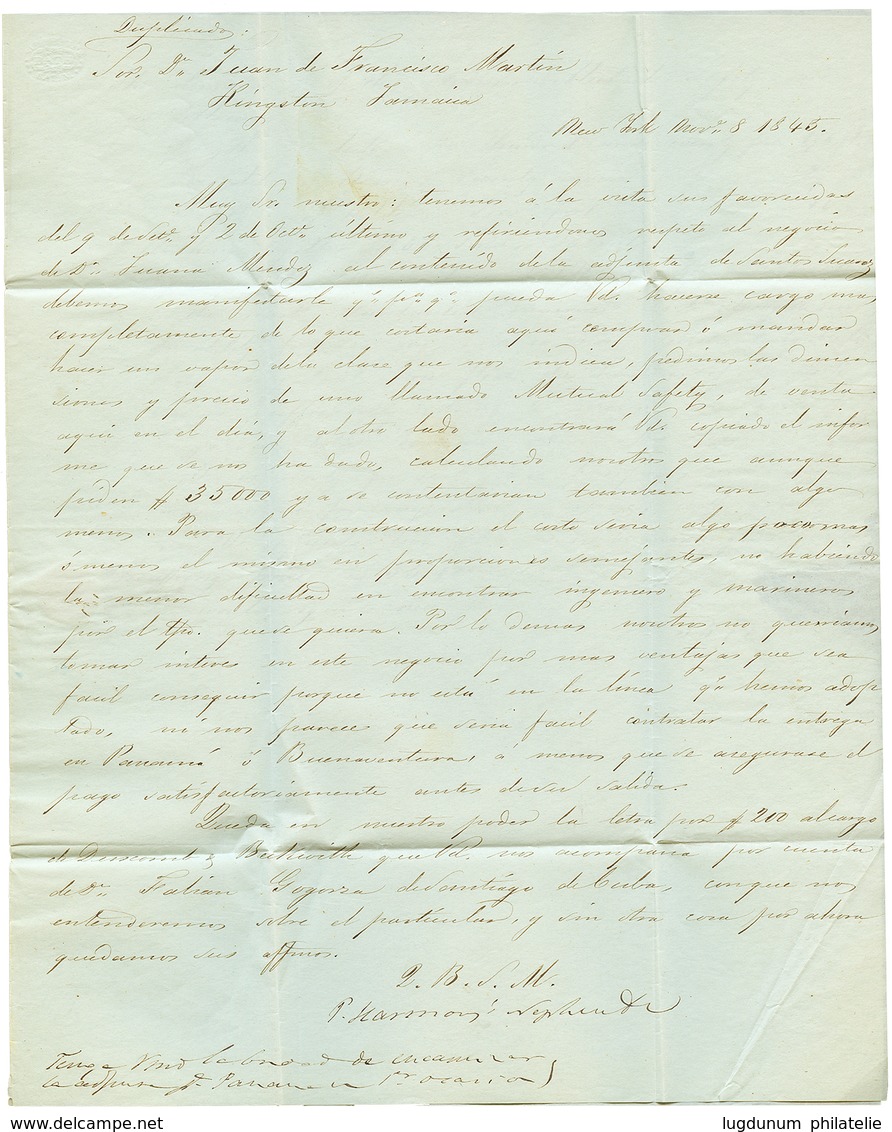 Duplicado:
Sor. Dn. Juan de Francisco Martin
Kingston Jamaica
New York Novr. 8 1845.
Muy Sr. nuestro: tenemos á la vista sus favorecidas
del 9 de Setbe. y 2 de Octbe. último y refiriendonos respeto al negocio
de Dn. Mendez al contenido de la adjunta de Santos Suarez
debemos manifestarle qe. pa. qe. pueda Vd. hacerse cargo mas
completamente de lo que costaria aqui comprar ó mandar
hacer un vapor dela clase que nos indica, pedimos las dimen
siones y precio de uno llamado Mutual Safety, de venta
aqui en el dia, y al otro lado encontrará Vd. copiado el infor
me que se nos ha dado, calculando nosotros que aunque
piden $ 35000 ya se contentarian tambien con algo
menos. Para la construccion el costo seria algo poco mas
ó menos el mismo en proporciones semejantes, no habiendo
la menor dificultad en encontrar ingeniero y marineros
por el tpo. que se quiera. Por lo demas nosotros no querriamos
tomar interes en este negocio por mas ventajas que sea
facil conseguir porque no está en la linea qe. hemos adop
tado, ni nos parece que seria facil contratar la entrega
en Panamá ó Buenaventura, á menos que se asegurase el
pago satisfactoriamente antes de ser salida.
Queda en nuestro poder la letra por $ 200 al cargo
de Beckwith que Vd. nos acompaña por cuenta
de Dn. Fabian Gogorza de Santiago de Cuba, conque nos
entenderemos sbre el particular, y sin otra cosa por ahora
quedamos sus affmos.
Q. B. S. M.
P. Harmony's Nephews &
Tenga Vmd la bondad de encaminar
la adjunta pa. Panama en 1ra. ocasion
lugdunum philatelie